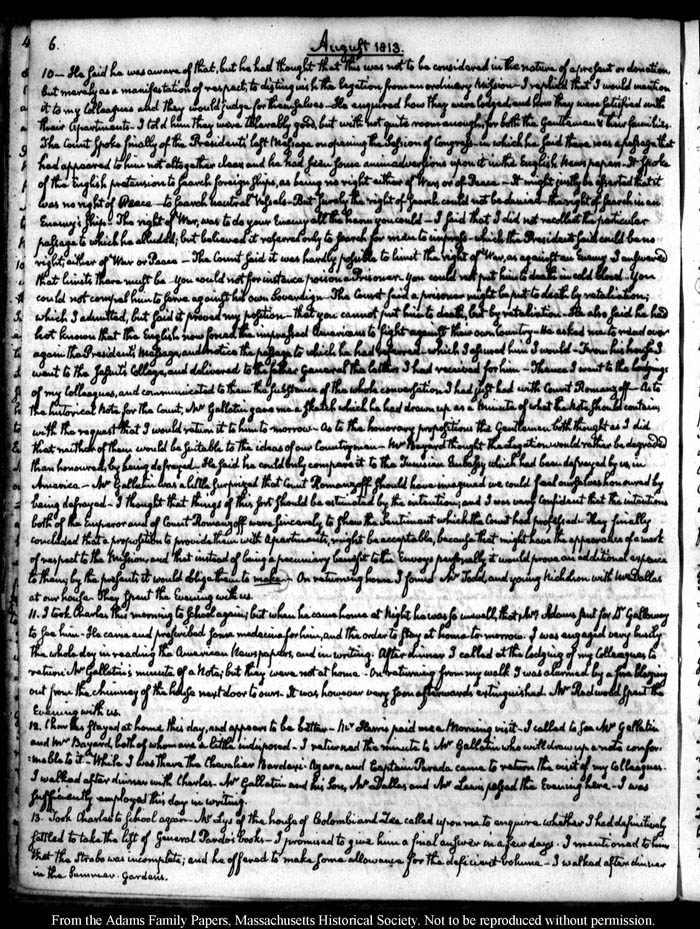 6.
August 1813.
10 — He said he was aware of that, but he had thought that this was not to be considered in the nature of a present or donation
but merely as a manifestation of respect, to distinguish the legation from an ordinary Mission — I replied that I would mention
it to my Colleagues and they would judge for themselves — He enquired how they were lodged and how they were satisfied with
their Apartments — I told him they were tolerably good, but with not quite room enough, for both the Gentlemen & their families.
The Count spoke finally of the President's last Message on opening the Session of Congress — in which he said there was a passage that
had appeared to him not altogether clear, and he had seen some animadversions upon it in the English Newspapers — It spoke
of the English pretension to search foreign ships, as being no right either of War, or of Peace — It might justly be asserted that it
was no right of Peace — to search neutral Vessels — But surely the right of Search could not be denied — the right of search in an
Enemy's Ship. The right of War, was to do your Enemy all the harm you could — I said that I did not recollect the particular
passage to which he alluded; but believed it referred only to search for men to impress — which the President said could be no
right, either of War or Peace — The Count said it was hardly possible to limit the right of War, as against an Enemy. I answered
that limits there must be — You could not for instance poison a Prisoner — You could not put him to death in cold blood — You
could not compel him to serve against his own Sovereign — The Count said a prisoner might be put to death by retaliation;
which I admitted, but said it proved my position — that you cannot put him to death, but by retaliation — He also said he had
not known that the English now forced the impressed Americans to fight against their own Country — He asked me to read over
again the President's Message, and notice the passage to which he had referred — which I assured him I would — From his house I
went to the Jesuits College, and delivered to the father General the letter I had received for him — Thence I went to the lodgings
of my Colleagues, and communicated to them the substance of the whole conversation I had just had with Count Romanzoff — As to
the historical Note for the Count, Mr Gallatin gave me a sketch which he had drawn up as a Minute of what the Note should contain
with the request that I would return it to him to-morrow — As to the honorary propositions the Gentlemen both thought as I did
that neither of them would be suitable to the ideas of our Countrymen — Mr Bayard thought the Legation would rather be degraded
than honoured, by being defrayed — He said he could only compare it to the Tunisian Embassy which had been defrayed by us, in
America — Mr Gallatin was a little surprized that Count Romanzoff should have imagined we could feel ourselves honoured by
being defrayed — I thought that things of this sort should be estimated by the intention; and I was very confident that the intentions
both of the Emperor and of Count Romanzoff were sincerely to shew the sentiment which the Count had professed — They finally
concluded that a proposition to provide them with apartments, might be acceptable, because that might have the appearance of a mark
of respect to the Mission, and that instead of being a pecuniary benefit to the Envoys personally it would prove an additional expence
to them, by the presents it would oblige them to make — On returning home I found Mr Todd, and young Nicholson with Mr Dallas
at our house. They spent the Evening with us.
11. I took Charles this morning to School again; but when he came home at Night he was so unwell, that Mrs Adams sent for Dr Galloway
to see him — He came and prescribed some medicine for him, and the order to stay at home to-morrow. I was engaged very busily
the whole day in reading the American Newspapers, and in writing. After dinner I called at the lodging of my Colleagues to
return Mr Gallatin's minute of a Note; but they were not at home — On returning from my walk I was alarmed by a fire blazing
out from the chimney of the house next door to ours. It was however very soon afterwards extinguished. Mr Redwood spent the
Evening with us.
12. Charles stayed at home this day, and appears to be better — Mr Harris paid me a Morning visit — I called to see Mr Gallatin
and Mr Bayard, both of whom are a little indisposed — I returned the minute to Mr Gallatin who will draw up a note confor-
:mable to it — While I was there the Chevalier Bardaxi Azara, and Captain Parada came to return the visit of my Colleagues.
I walked after dinner with Charles — Mr Gallatin and his Son, Mr Dallas and Mr Lewis passed the Evening here — I was
sufficiently employed this day in writing.
13. Took Charles to School again — Mr Lys of the house of Colombi and Zea called upon me to enquire whether I had definitively
settled to take the lift of General Pardo's books — I promised to give him a final answer in a few days. I mentioned to him
that the Strabo was incomplete; and he offered to make some allowance for the deficient volume — I walked after dinner
in the Summer-Gardens.
From the Adams Family Papers, Massachusetts Historical Society. Not to be reproduced without permission.